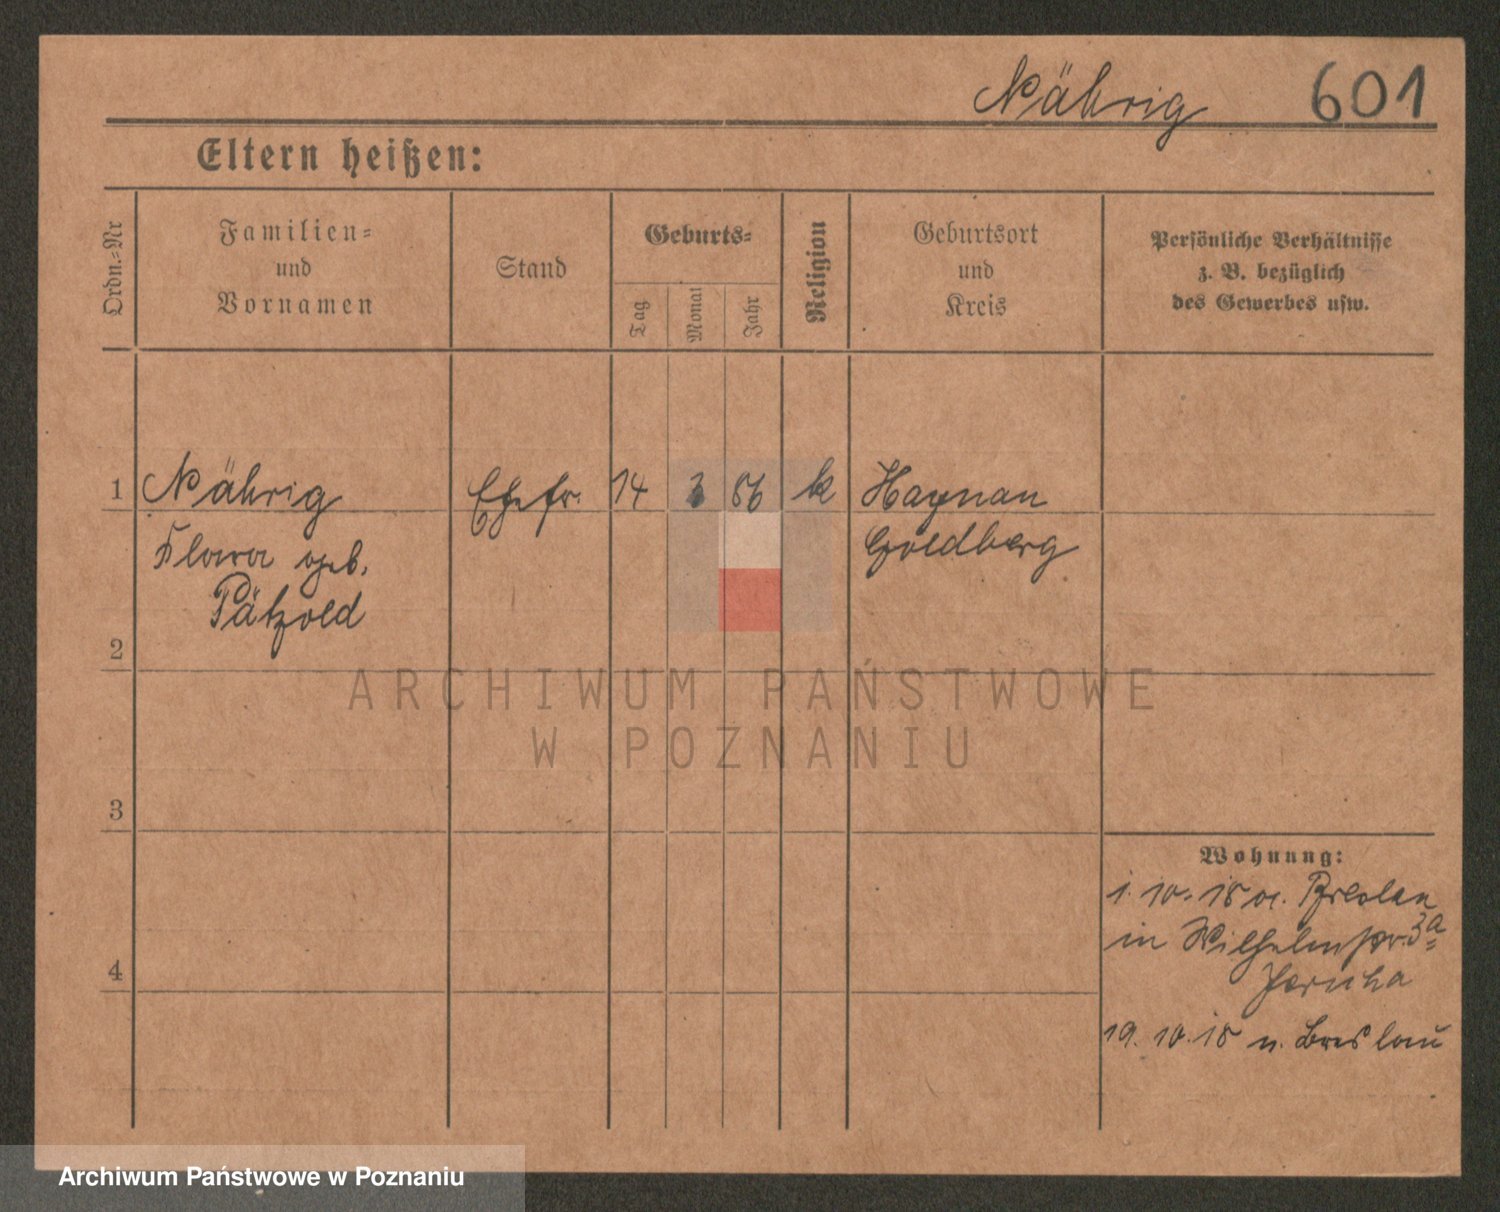 Nährig 601
Eltern heißen:
Ordn.=Nr
Familien=
und
Vornamen
Stand
Geburts=
Tag
Monat
Jahr
Religion
Geburtsort
und
Kreis
Persönliche Verhältnisse
z. B. bezüglich
des Gewerbes usw.
1 Nährig Ehefr. 14 3 86 k Haynau
Klara geb. Goldberg
Pätzold
2
ARCHIWUM PAŃSTWOWE
W POZNANIU
3
Wohnung:
1. 10. 18 a. Breslau
in Wilhelmstr. 3a
4
19. 10. 18 n. Breslau
Archiwum Państwowe w Poznaniu